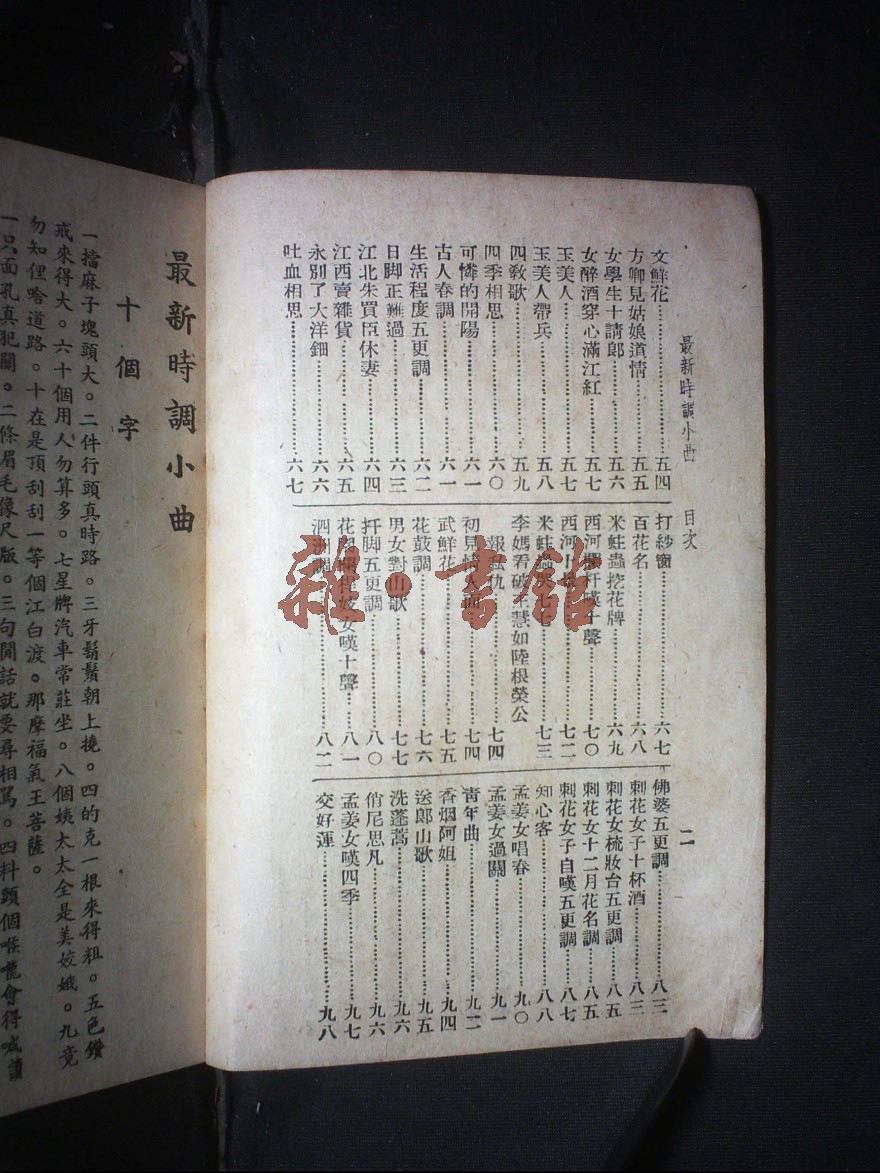 最新時調小曲 目次 二
文鮮花……五四
方卿見姑娘道情……五五
女學生十請郎……五六
女醉酒穿心滿江紅……五七
玉美人……五七
玉美人帶兵……五八
四教歌……五九
四季相思……六〇
可憐的開陽……六一
古人春調……六一
生活程度五更調……六二
日脚正難過……六三
江北朱買臣休妻……六四
江西賣雜貨……六五
永別了大洋鈿……六六
吐血相思……六七
打紗窗……六七
百花名……六八
米蛀蟲挖花牌……六九
西河欄杆嘆十聲……七〇
西河……七二
米蛀蟲……七三
李媽看破王慧如陸根榮公
報……仇……七四
初見情人面……七四
武鮮花……七五
花鼓調……七六
男女對山歌……七七
扦脚五更調……八〇
花……妓女嘆十聲……八一
泗洲調……八二
佛婆五更調……八三
刺花女子十杯酒……八三
刺花女梳妝台五更調……八五
刺花女十二月花名調……八五
刺花女子自嘆五更調……八七
知心客……八八
孟姜女唱春……九〇
孟姜女過關……九一
靑年曲……九二
香烟阿姐……九四
送郎山歌……九五
洗蓬蒿……九六
俏尼思凡……九六
孟姜女嘆四季……九七
交好運……九八
最新時調小曲
十個字
一擋麻子塊頭大。二件行頭真時路。三牙鬍鬚朝上撓。四的克一根來得粗。五色鑽
戒來得大。六十個用人勿算多。七星牌汽車常莊坐。八個姨太太全是美姣娥。九竟
勿知俚啥道路。十在是頂刮刮一等個江白渡。那摩福氣王菩薩。
一只面孔真犯關。二條眉毛像尺版。三句閒話就要尋相罵。四料頭個喉嚨會得喊
雜·書館